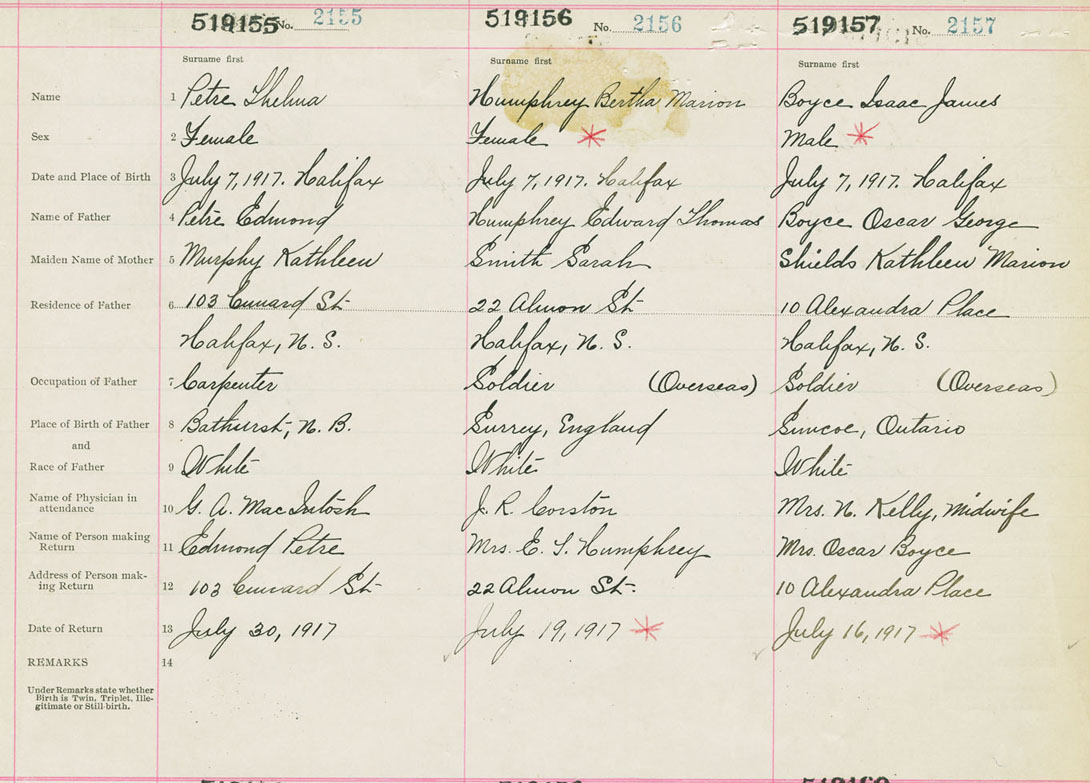 519155 No. 2155 519156 No. 2156 519157 No. 2157
Surname first Surname first Surname first
Name 1 Petrie Thelma Humphrey Bertha Marion Boyce Isaac James
Sex 2 Female Female * Male *
Date and Place of Birth 3 July 7, 1917. Halifax July 7, 1917. Halifax July 7, 1917. Halifax
Name of Father 4 Petrie Edmond Humphrey Edward Thomas Boyce Oscar George
Maiden Name of Mother 5 Murphy Kathleen Smith Sarah Shields Kathleen Marion
Residence of Father 6 103 Cunard St. 22 Almon St. 10 Alexandra Place
Halifax, N. S. Halifax, N. S. Halifax, N. S.
Occupation of Father 7 Carpenter Soldier (Overseas) Soldier (Overseas)
Place of Birth of Father 8 Bathurst, N. B. Surrey, England Simcoe, Ontario
and
Race of Father 9 White White White
Name of Physician in
attendance 10 G. A. MacIntosh J. R. Corston Mrs. N. Kelly, Midwife
Name of Person making
Return 11 Edmond Petrie Mrs. E. T. Humphrey Mrs. Oscar Boyce
Address of Person mak-
ing Return 12 103 Cunard St. 22 Almon St. 10 Alexandra Place
Date of Return 13 July 30, 1917 July 19, 1917 * July 16, 1917 *
REMARKS 14
Under Remarks state whether
Birth is Twin, Triplet, Ille-
gitimate or Still-birth.